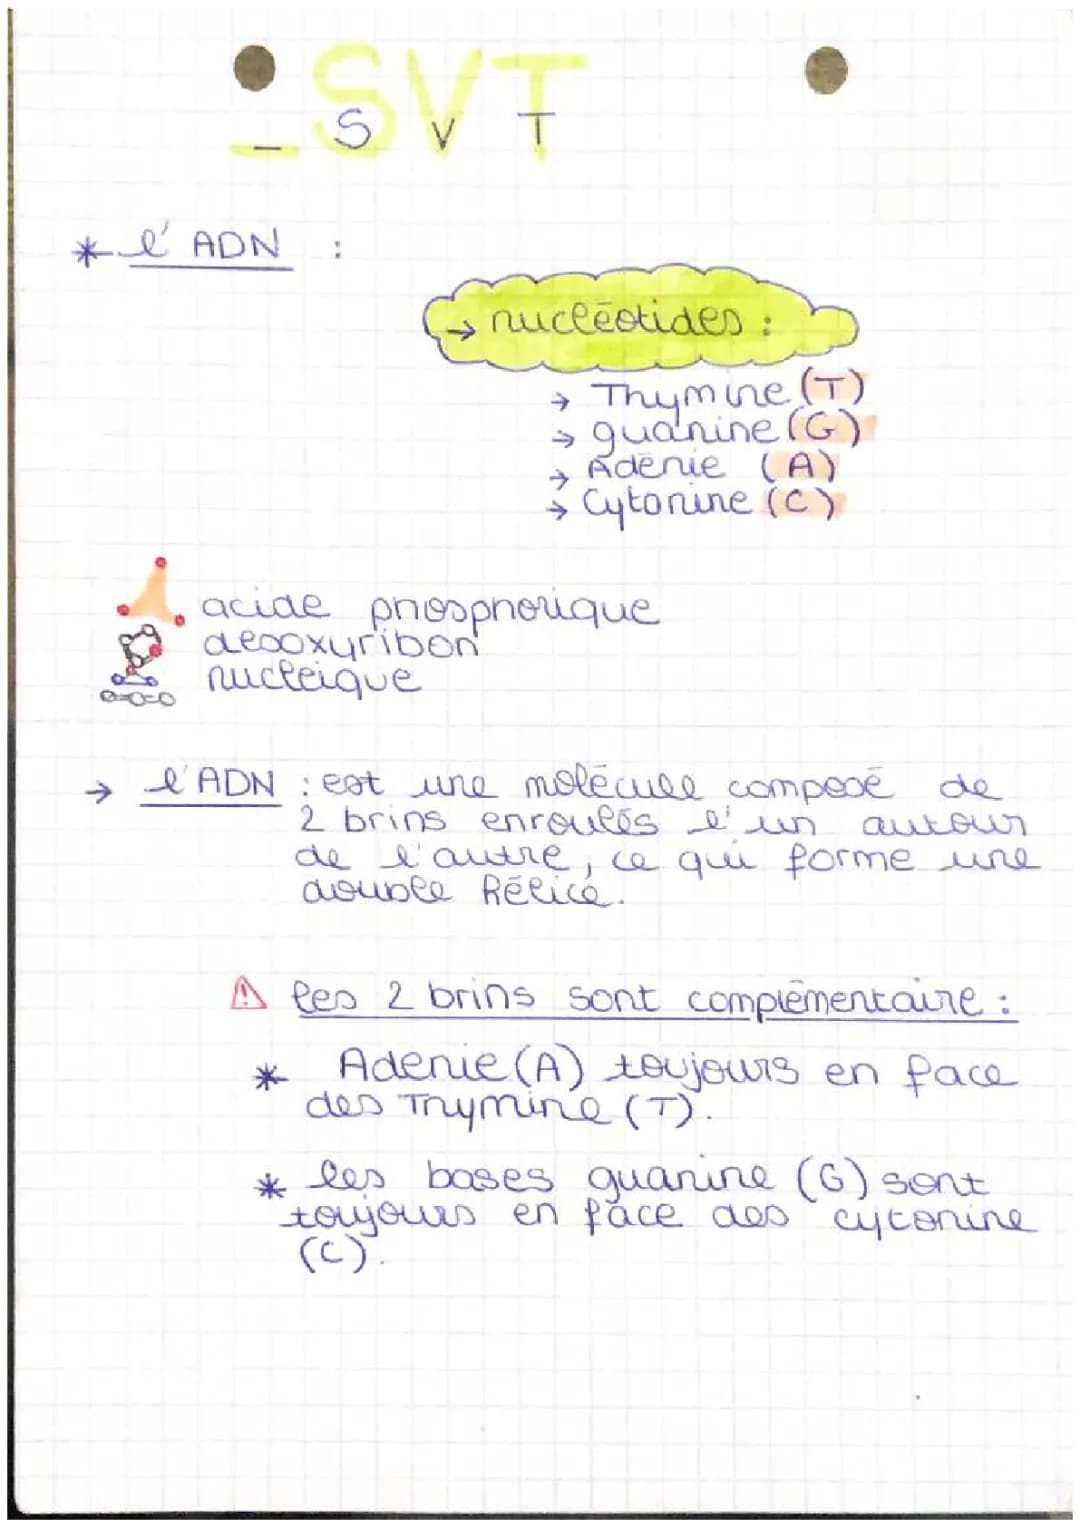 SVT
- S V T
* l'ADN :
→ nucléotides :
→ Thymine (T)
→ guanine (G)
→ Adénie (A)
→ Cytonine (C)
acide phosphorique
desoxyribon
nucleique
→ l'ADN : est une molécule composé de
2 brins enroulés l'un autour
de l'autre, ce qui forme une
double hélice.
⚠ les 2 brins sont complémentaire :
* Adenie (A) toujours en face
des Thymine (T).
* les bases guanine (G) sont
toujours en face des cytonine
(C).